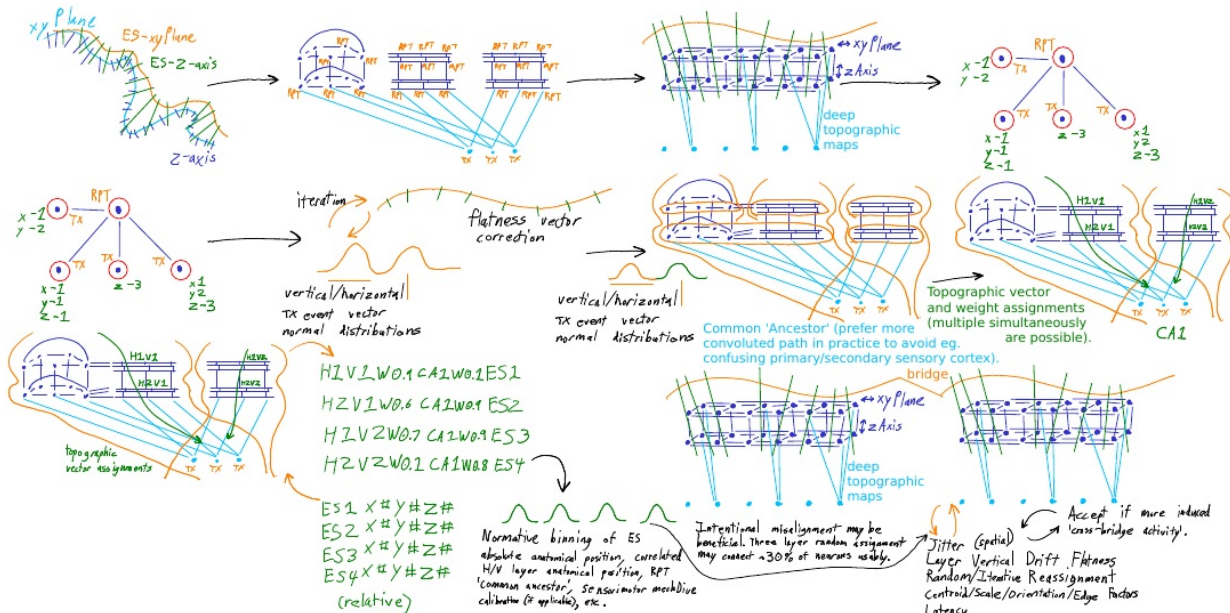 xy Plane
ES-xyPlane
ES-Z-axis
Z-axis
RPT RPT RPT RPT
RPT RPT RPT
RPT RPT RPT
RPT RPT RPT
RPT RPT RPT
RPT RPT RPT
RPT RPT RPT
TX TX TX
↔ xyPlane
↕ zAxis
deep
topographic
maps
RPT
x-1
y-2
TX
TX TX TX
x-1
y-1
z-1
z-3
x1
y2
z-3
RPT
x-1
y-2
TX
TX TX TX
x-1
y-1
z-1
z-3
x1
y2
z-3
iteration
flatness vector
correction
vertical/horizontal
TX event vector
normal distributions
vertical/horizontal
TX event vector
normal distributions
TX TX TX
Common 'Ancestor' (prefer more
convoluted path in practice to avoid eg.
confusing primary/secondary sensory cortex).
bridge
H1V1
H1V2
H2V1
H2V2
TX TX TX
Topographic vector
and weight assignments
(multiple simultaneously
are possible).
CA1
H1V1
H1V2
H2V1
H2V2
topographic
vector assignments
TX TX TX
H1V1W0.9CA1W0.1ES1
H2V1W0.6 CA1W0.9 ES2
H1V2W0.7 CA1W0.9 ES3
H2V2W0.1 CA1W0.8 ES4
ES1 X# Y# Z#
ES2 X# Y# Z#
ES3 X# Y# Z#
ES4 X# Y# Z#
(relative)
Normative binning of ES
absolute anatomical position, correlated
H/V layer anatomical position, RPT
'common ancestor', sensorimotor mechDive
calibration (if applicable), etc.
↔ xyPlane
↕ zAxis
deep
topographic
maps
Intentional misalignment may be
beneficial. Three layer random assignment
may connect ~30% of neurons usably.
Accept if more induced
'cross-bridge activity'.
Jitter (spatial)
Layer Vertical Drift Flatness
Random/Iterative Reassignment
Centroid/Scale/Orientation/Edge Factors
Latency